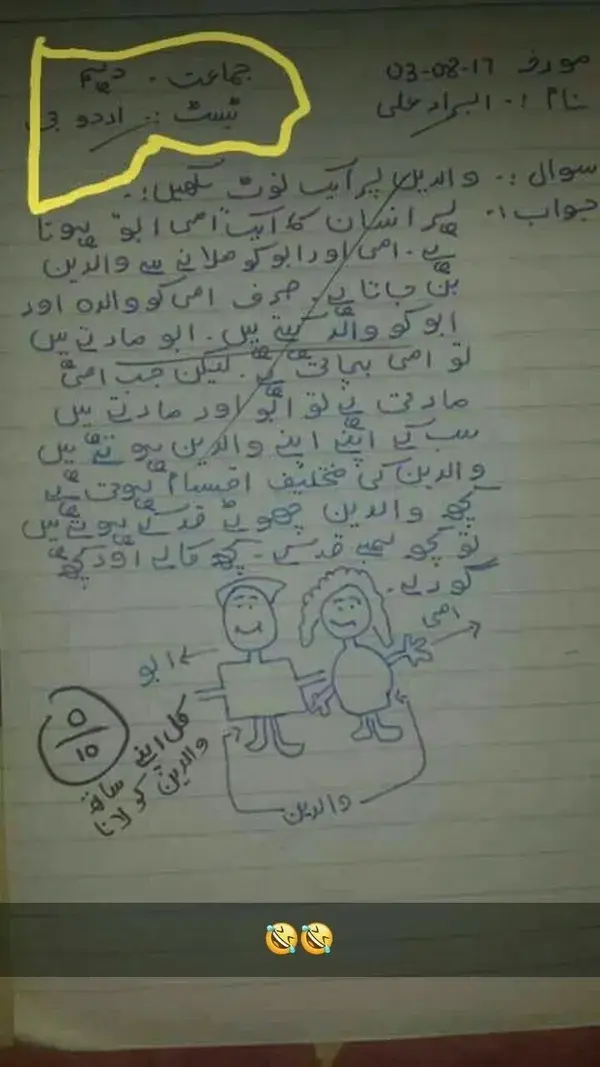 مورخہ 03-08-17
جماعت . دہم
نام :. ابرار علی
ٹیسٹ :. اردو بی
سوال :. والدین پر ایک نوٹ لکھیں :.
جواب :. ہر انسان کا ایک امی ابو ہوتا
ہے . امی اور ابو کو ملانے سے والدین
بن جاتا ہے . صرف امی کو والدہ اور
ابو کو والد کہتے ہیں . ابو مارتے ہیں
تو امی بچاتی ہے . لیکن جب امی
مارتی ہے تو ابو اور مارتے ہیں
سب کے اپنے اپنے والدین ہوتے ہیں
والدین کی مختلیف اقسام ہوتی ہے
کچھ والدین چھوٹے قد کے ہوتے ہیں
تو کچھ لمبے قد کے . کچھ کالے اور کچھ
گورے .
امی
ابو
والدین
0/10
کل اپنے ساتھ
والدین کو لانا